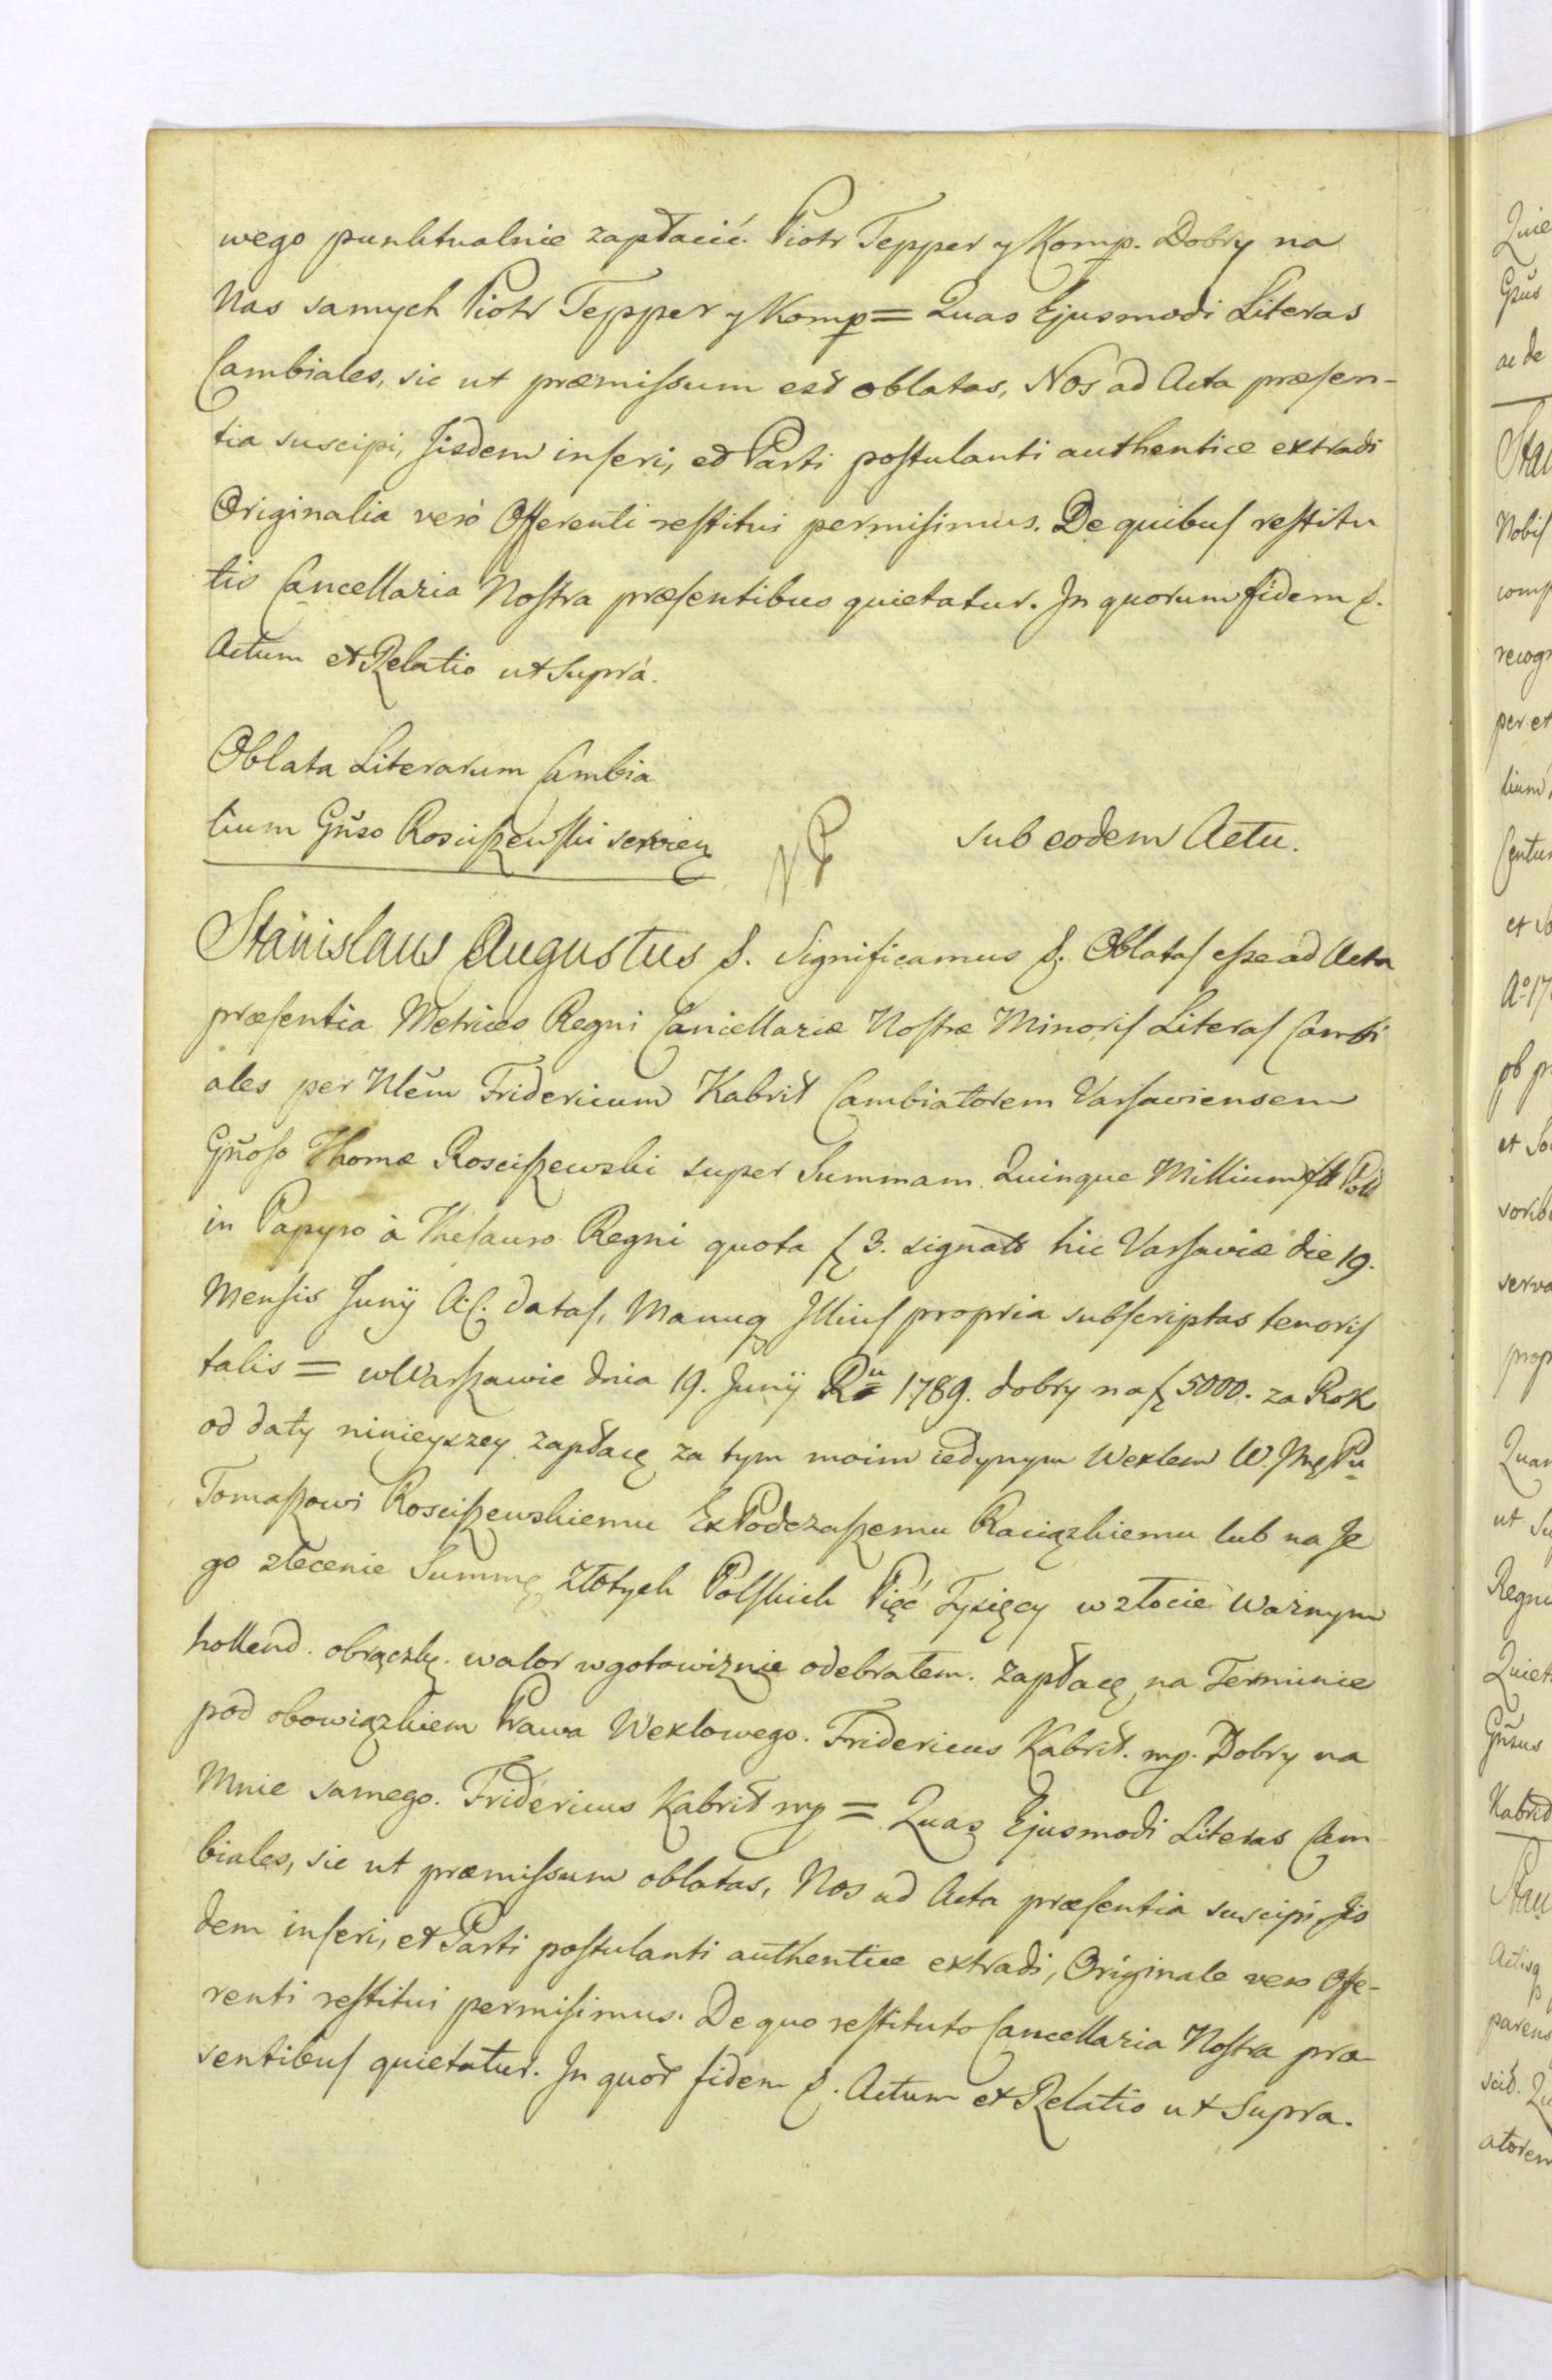 wego punktualnie zapłacić. Piotr Tepper y Komp. Dobry na
Nas samych Piotr Tepper y Komp = Quas Ejusmodi Literas
Cambiales, sic ut præmiſsum est oblatas, Nos ad Acta præſen-
tia suscipi, Jisdem inſeri, et Parti poſtulanti authentice extradi
Originalia verò Offerenti reſtitui permiſimus. De quibuſ reſtitu
tis Cancellaria Noſtra præſentibus quietatur. In quorum fidem &.
Actum et Relatio ut Suprà.
Oblata Literarum Cambia
lium Gñso Rosciſzewſki servien
sub eodem Actu.
Stanislaus Augustus &. Significamus &. Oblataſ eſse ad Acta
præſentia Metrices Regni Cancellariæ Noſtræ Minoriſ Literaſ Cambi
ales per Nlĕm Fridericum Kabrit Cambiatorem Varſaviensem
Gñoſo Thomæ Rosciſzewski super Summam Quinque Millium fll Poll
in Papyro à Theſauro Regni quota f 3. signato hic Varſaviæ die 19.
Menſis Junÿ A. C. dataſ, Manuq Illiuſ propria subſcriptas tenoriſ
talis = w Warſzawie dnia 19. Junÿ Ru 1789. dobry na f 5000. za Rok
od daty ninieyszey zapłacę za tym moim iedynym Wexlem W. Jmę Pu
Tomaſzowi Rosciſzewskiemu ExPodczaſzemu Raciązkiemu lub na Je
go zlecenie Summę Złotych Polſkich Pięć Tysięcy w złocie Ważnym
hollend. obrączk. walor w gotowiznie odebrałem. Zapłacę na Terminie
pod obowiązkiem Prawa Wexlowego. Fridericus Kabrit. mp. Dobry na
Mnie samego. Fridericus Kabrit mp = Quas Ejusmodi Literas Cam-
biales, sic ut præmiſsum oblatas, Nos ad Acta præſentia suscipi, Jis
dem inſeri, et Parti poſtulanti authentice extradi, Originale vero Offe-
renti reſtitui permiſimus. De quo reſtituto Cancellaria Noſtra præ
sentibuſ quietatur. In quor fidem &. Actum et Relatio ut Supra.